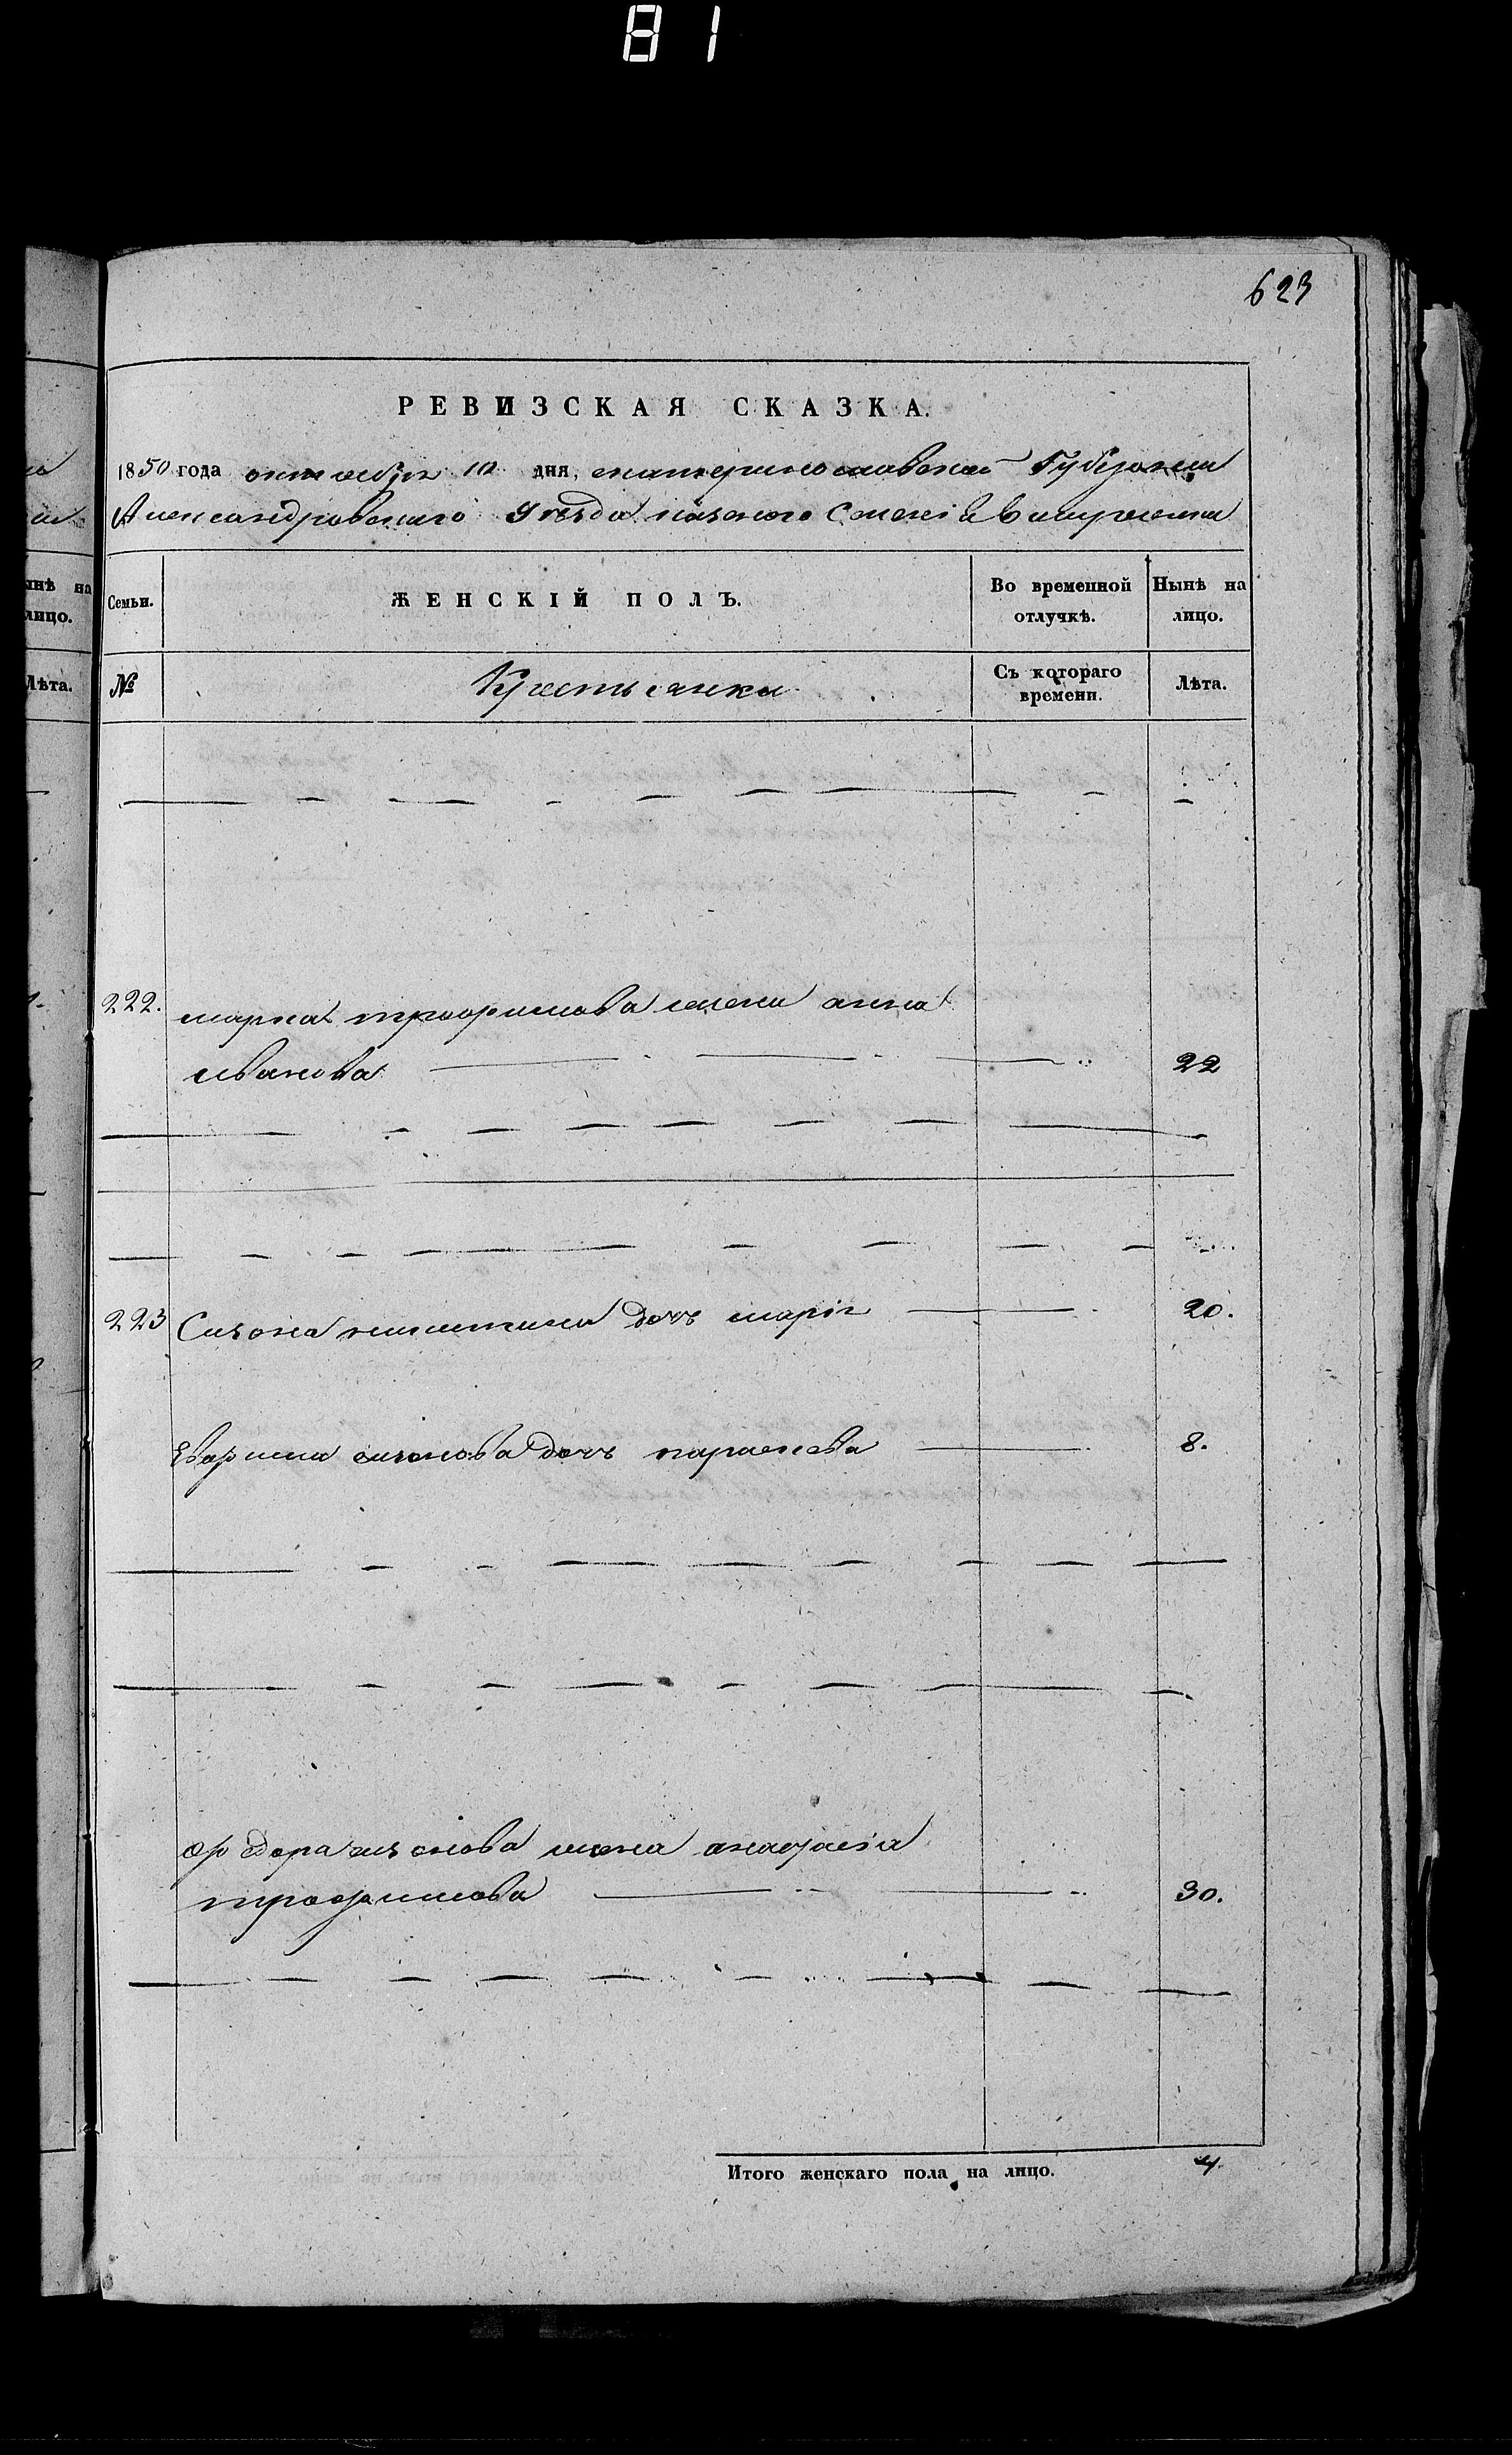 81
623
РЕВИЗСКАЯ СКАЗКА.
1850 года октября 10 дня, екатеринославской Губернии
Александровского Уезда казеного Селения
Семьи.
ЖЕНСКІЙ ПОЛЪ.
Во временной отлучкѣ.
Нынѣ на лицо.
№
Крестьянки
Съ котораго времени.
Лѣта.
222. марка трофимова жена анна
иванова 22
223 Сизона никитина дочь марія 20.
сизонова дочь парасковa 8.
федора сизонова жена анафасія
трофимова 30.
Итого женскаго пола на лицо. 4
инѣ на
лицо.
Лѣта.